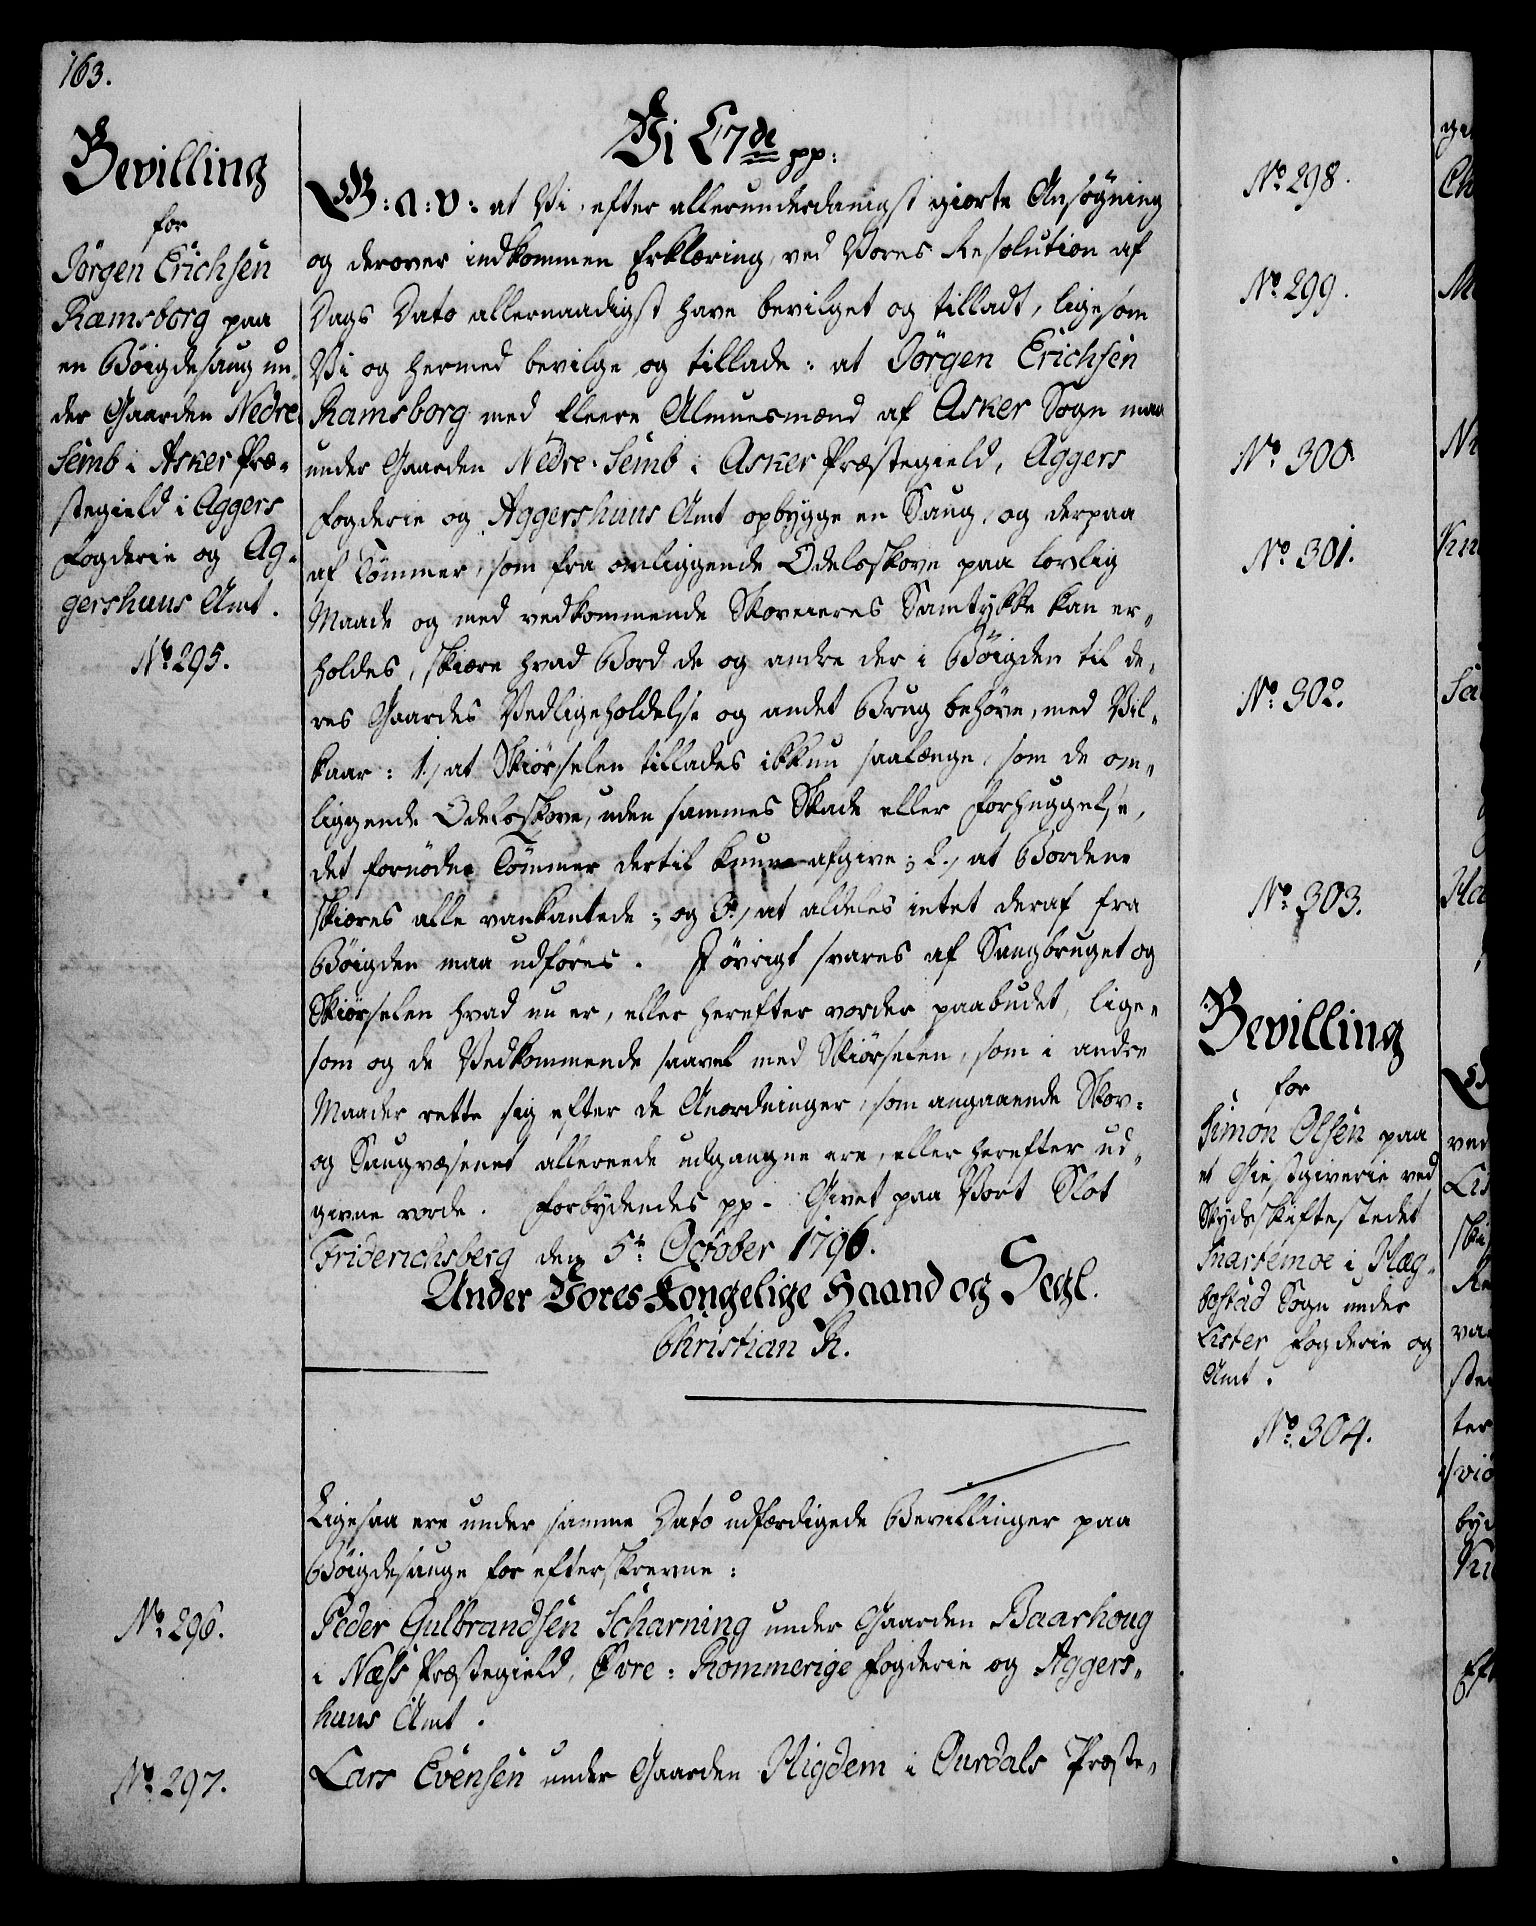 163.
Bevilling
for
Jörgen Erichsen
Ramsborg paa
en Böigdesaug un-
der Gaarden Nedre
Semb i Asker Præ-
stegield i Aggers
Fogderie og Ag-
gershuus Amt.
No 295.
Vi C7de pp:
G: A: V: at Vi, efter allerunderdanigst giorte Ansögning
og derover indkommen Erklæring, ved Vores Resolution af
Dags Dato allernaadigst have bevilget og tilladt, ligesom
Vi og hermed bevilge og tillade: at Jörgen Erichsen
Ramsborg med fleere Almuesmænd af Asker Sogn maa
under Gaarden Nedre-Semb i Asker Præstegield, Aggers
Fogderie og Aggershuus Amt opbygge en Saug, og derpaa
af Tömmer, som fra omliggende Odelsskove paa lovlig
Maade og med vedkommende Skoveieres Samtykke kan er-
holdes, skiære hvad Bord de og andre der i Böigden til de-
res Gaardes Vedligeholdelse og andet Brug behöve, med Vil-
kaar: 1., at Skiörselen tillades ikkun saalænge, som de om-
liggende Odelsskove, uden sammes Skade eller Forhuggelse,
det fornödne Tömmer dertil kunne afgive; 2., at Bordene
skiæres alle vankantede; og 3., at aldeles intet deraf fra
Böigden maa udföres. I övrigt svares af Saugbruget og
Skiörselen hvad nu er, eller herefter vorder paabudet, lige-
som og de Vedkommende saavel med Skiörselen, som i andre
Maader rette sig efter de Anordninger, som angaaende Skov-
og Saugvæsenet allereede udgangne ere, eller herefter ud-
givne vorde. Forbydendes pp. Givet paa Vort Slot
Friderichsberg den 5te October 1796.
Under Vores Kongelige Haand og Segl.
Christian R.
Ligesaa ere under samme Dato udfærdigede Bevillinger paa
Böigdesauge for efterskrevne:
No 296.
Peder Gulbrandsen Scharning under Gaarden Baarhoug
i Næss Præstegield, Övre-Rommerige Fogderie og Aggers-
huus Amt.
No 297.
Lars Evensen under Gaarden Higdem i Ourdals Præste-
No 298.
No 299.
No 300.
No 301.
No 302.
No 303.
Bevilling
for
Simon Olsen paa
et Giestgiverie ved
Skydsskiftestedet
Snartemoe i Hæg-
bostad Sogn under
Lister Fogderie og
Amt.
No 304.